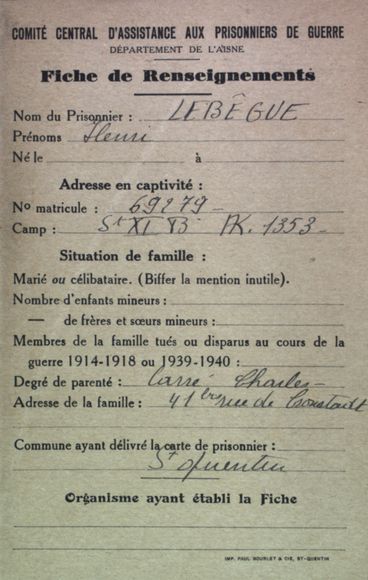 COMITÉ CENTRAL D'ASSISTANCE AUX PRISONNIERS DE GUERRE
DÉPARTEMENT DE L'AISNE
Fiche de Renseignements
Nom du Prisonnier : LEBÈGUE
Prénoms Henri
Né le à
Adresse en captivité :
No matricule : 69279
Camp : St XI B AK. 1353
Situation de famille :
Marié ou célibataire. (Biffer la mention inutile).
Nombre d'enfants mineurs :
— de frères et sœurs mineurs :
Membres de la famille tués ou disparus au cours de la
guerre 1914-1918 ou 1939-1940 :
Degré de parenté : Carré Charles
Adresse de la famille : 41 rue de
Commune ayant délivré la carte de prisonnier :
St Quentin
Organisme ayant établi la Fiche
IMP. PAUL BOURLET & CIE, ST-QUENTIN